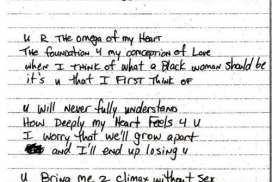 U R The omega of my Heart
The foundation 4 my conception of Love
when I THINK of what a Black woman should be
it's u that I First Think of
U will Never fully understand
How Deeply my Heart Feels 4 U
I worry that we'll grow apart
and I'll end up losing u
U Bring me 2 climax without sex